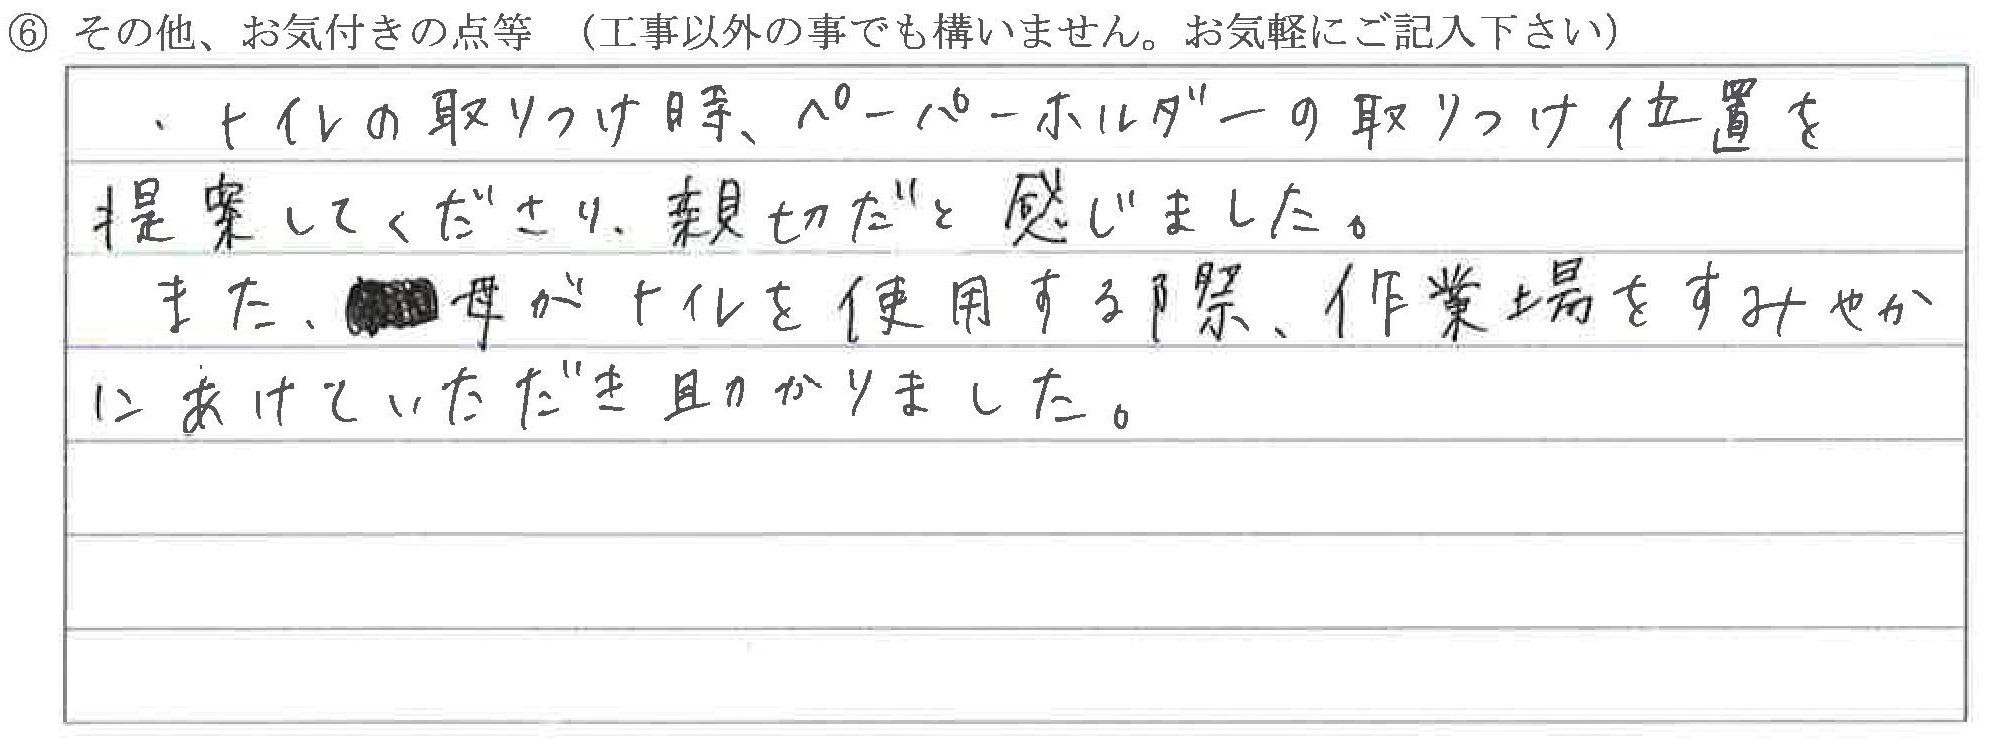 ⑥ その他、お気付きの点等 （工事以外の事でも構いません。お気軽にご記入下さい）
・トイレの取りつけ時、ペーパーホルダーの取りつけ位置を
提案してくださり、親切だと感じました。
また、母がトイレを使用する際、作業場をすみやか
にあけていただき助かりました。